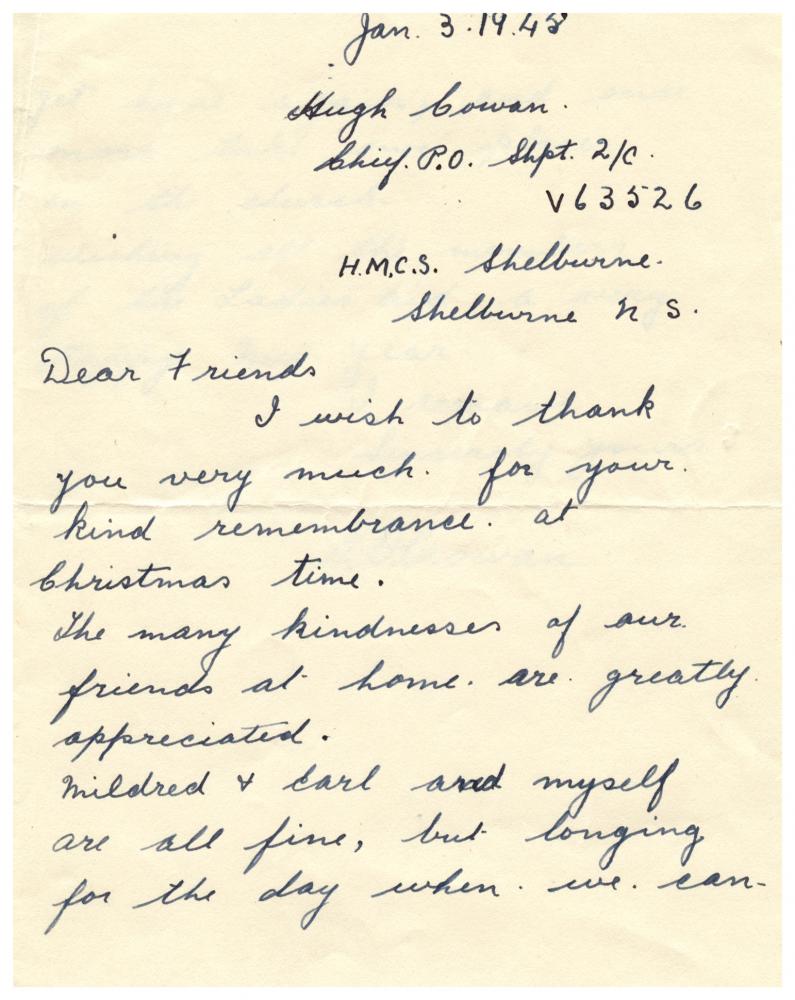 Jan. 3. 1945
Hugh Cowan.
Chief. P.O. Shpt. 2/C.
V63526
H.M.C.S. Shelburne.
Shelburne N S.
Dear Friends
I wish to thank
you very much. for your.
kind remembrance. at
Christmas time.
The many kindnesses of our.
friends at home. are. greatly.
appreciated.
Mildred & Earl and myself
are all fine, but longing
for the day when. we. can-